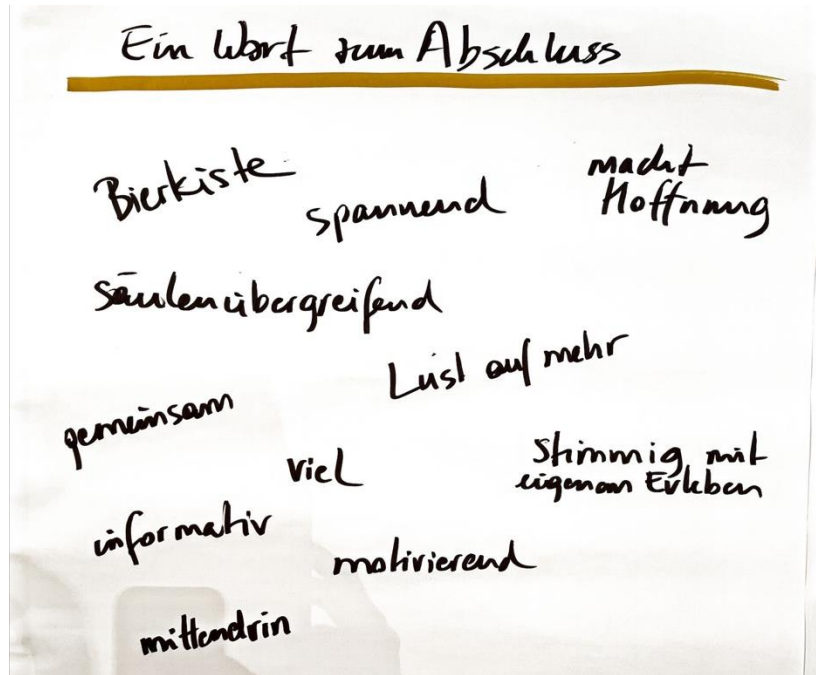 Ein Wort zum Abschluss
Bierkiste
spannend
macht
Hoffnung
säulenübergreifend
Lust auf mehr
gemeinsam
viel
Stimmig mit
eigenem Erleben
informativ
motivierend
mittendrin